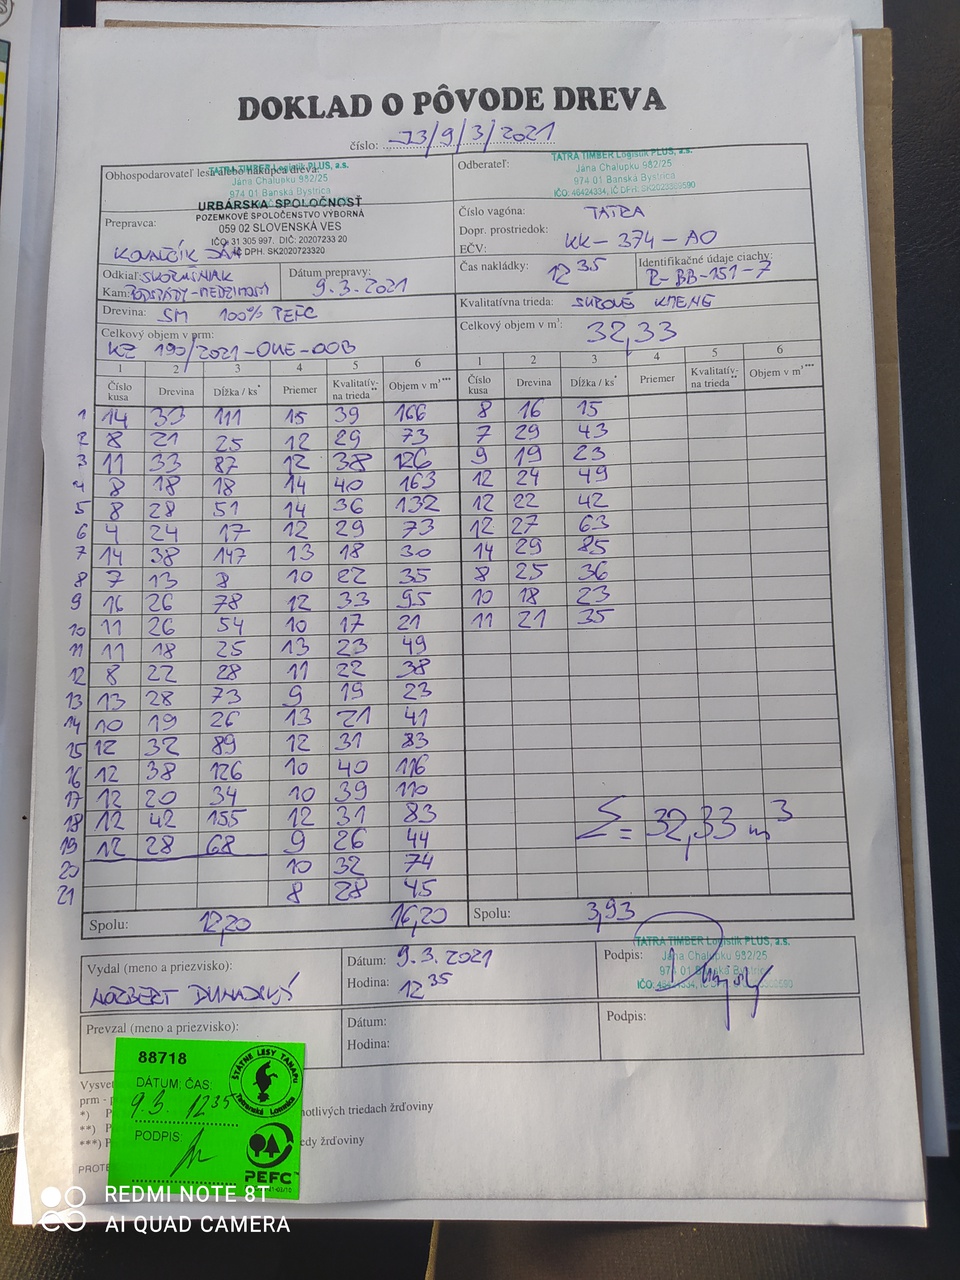 DOKLAD O PÔVODE DREVA
číslo: 73/9/3/2021
Obhospodarovateľ lesa alebo nákupca dreva:
TATRA TIMBER Logistik PLUS, a.s.
Jána Chalupku 982/25
974 01 Banská Bystrica
URBÁRSKA SPOLOČNOSŤ
POZEMKOVÉ SPOLOČENSTVO VÝBORNÁ
059 02 SLOVENSKÁ VES
IČO: 31 305 997. DIČ: 20207233 20
IČ DPH: SK2020723320
Odberateľ:
TATRA TIMBER Logistik PLUS, a.s.
Jána Chalupku 982/25
974 01 Banská Bystrica
IČO: 46424334, IČ DPH: SK2023399590
Prepravca:
KOVALČÍK JÁN
Číslo vagóna: TATRA
Dopr. prostriedok:
EČV: KK - 374 - AO
Odkiaľ:
Kam:
Dátum prepravy:
9.3.2021
Čas nakládky: 12 35
Identifikačné údaje ciachy:
R-BB-151-7
Drevina: SM 100% PEFC
Kvalitatívna trieda: SUROVÉ KMENE
Celkový objem v prm:
KZ 190/2021-OKE-OOB
Celkový objem v m³: 32,33
1 2 3 4 5 6 1 2 3 4 5 6
Číslo kusa Drevina Dĺžka / ks* Priemer Kvalitatív-na trieda** Objem v m³*** Číslo kusa Drevina Dĺžka / ks* Priemer Kvalitatív-na trieda** Objem v m³***
1 14 33 111 15 39 166 8 16 15
2 8 21 25 12 29 73 7 29 43
3 11 33 87 12 38 126 9 19 23
4 8 18 18 14 40 163 12 24 49
5 8 28 51 14 36 132 12 22 42
6 4 24 17 12 29 73 12 27 63
7 14 38 147 13 18 30 14 29 85
8 7 13 8 10 22 35 8 25 36
9 16 26 78 12 33 95 10 18 23
10 11 26 54 10 17 21 11 21 35
11 11 18 25 13 23 49
12 8 22 28 11 22 38
13 13 28 73 9 19 23
14 10 19 26 13 21 41
15 12 32 89 12 31 83
16 12 38 126 10 40 116
17 12 20 34 10 39 110
18 12 42 155 12 31 83
Σ = 32,33 m³
19 12 28 68 9 26 44
20 10 32 74
21 8 28 45
Spolu: 12,20 16,20 Spolu: 3,93
Vydal (meno a priezvisko):
NORBERT
Dátum: 9.3.2021
Hodina: 12 35
Podpis:
TATRA TIMBER Logistik PLUS, a.s.
Jána Chalupku 982/25
974 01 Banská Bystrica
Prevzal (meno a priezvisko):
Dátum:
Hodina:
Podpis:
88718
DÁTUM; ČAS:
9.3. 12 35
PODPIS
ŠTÁTNE LESY TANAPu
Tatranská Lomnica
PEFC
Vysvet
prm - p
*) P
notlivých triedach žrďoviny
**) P
***) P
edy žrďoviny
PROTE
REDMI NOTE 8T
AI QUAD CAMERA